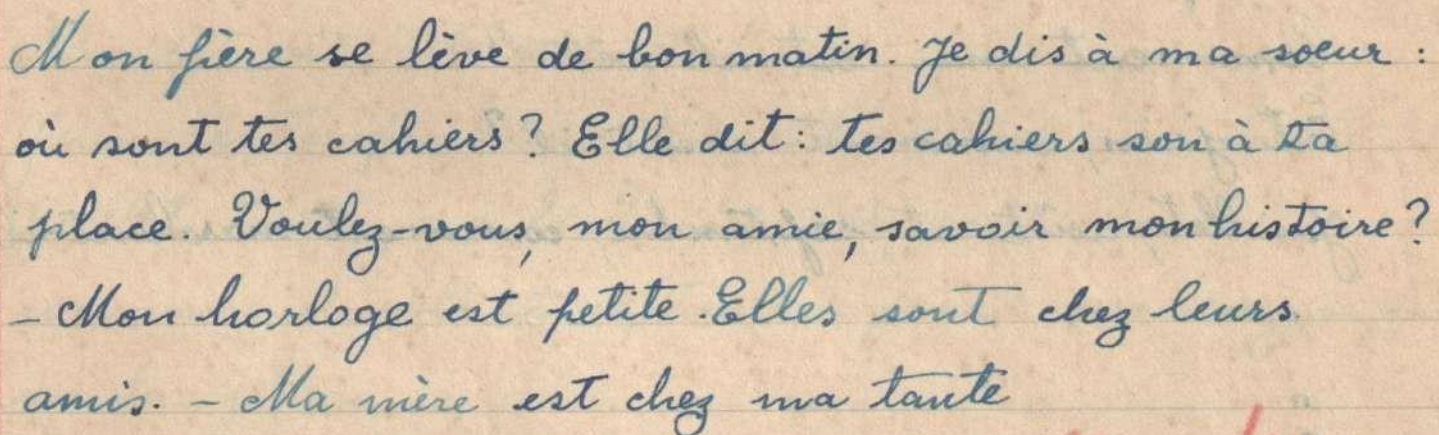 Mon père se lève de bon matin. Je dis à ma soeur :
où sont tes cahiers? Elle dit: tes cahiers son à ta
place. Voulez-vous, mon amie, savoir mon histoire?
- Mon horloge est petite. Elles sont chez leurs
amis. - Ma mère est chez ma tante